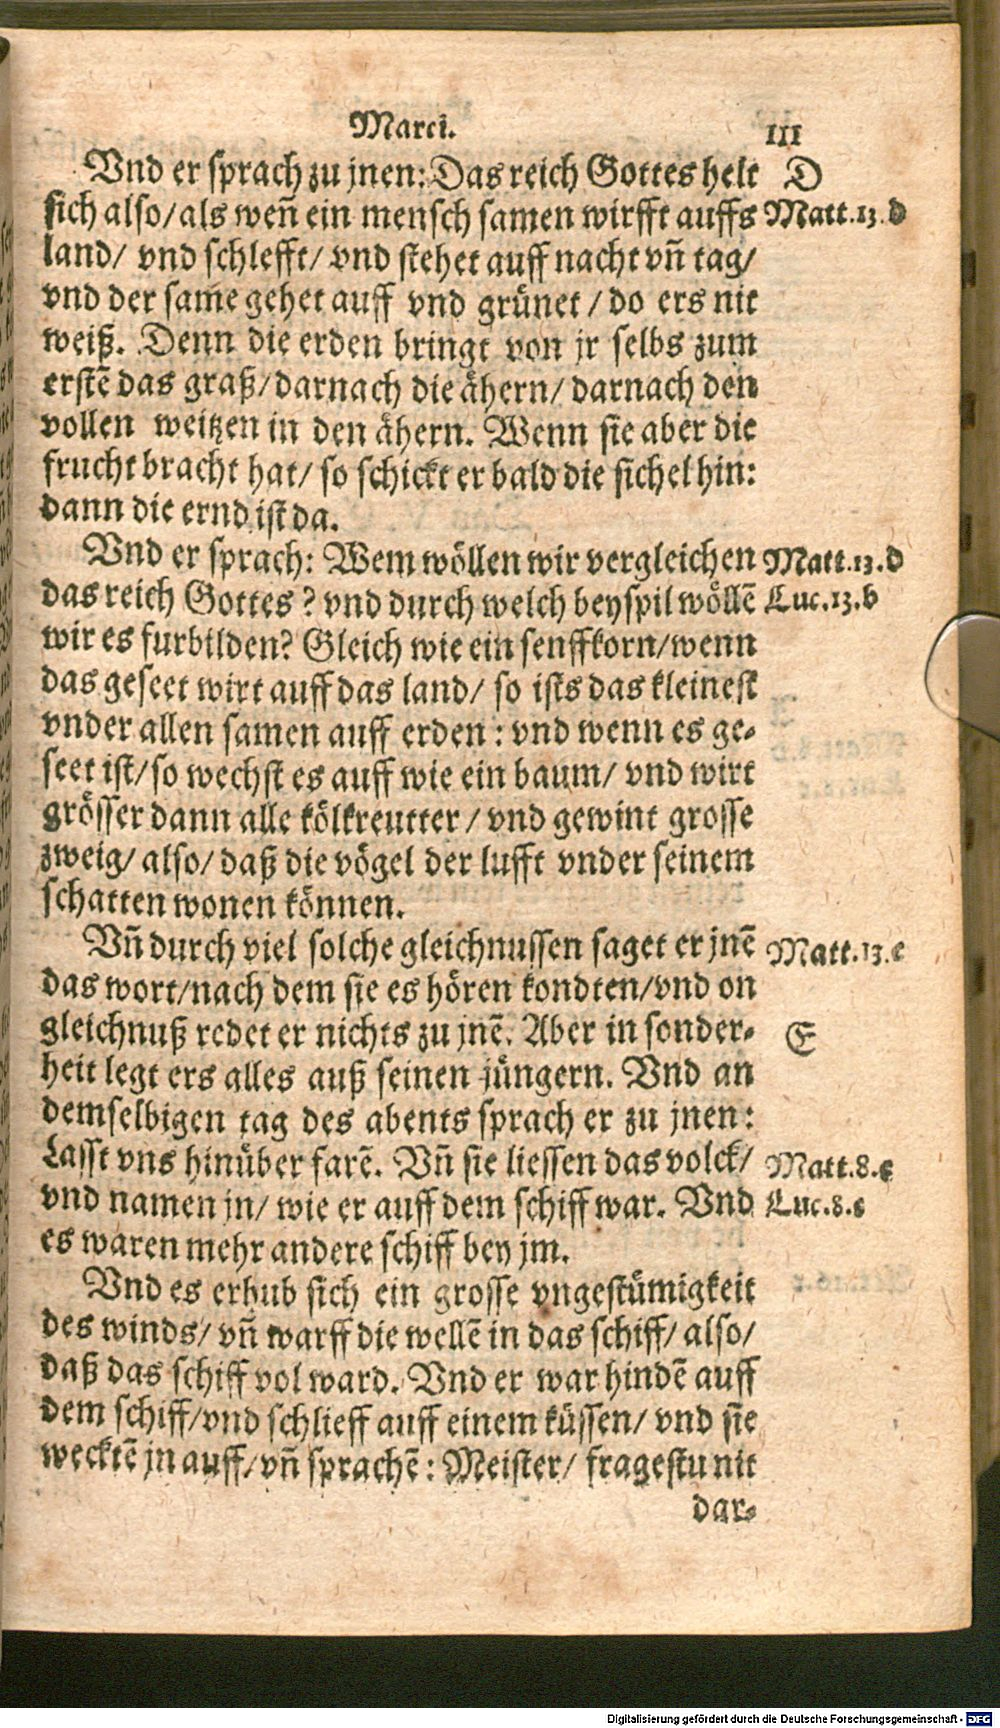 Marci. 111
Vnd er sprach zu jnen: Das reich Gottes helt D
sich also/ als wen̄ ein mensch samen wirfft auffs Matt.13.d
land/ vnd schlefft/ vnd stehet auff nacht vn̄ tag/
vnd der same gehet auff vnd grünet / do ers nit
weiß. Denn die erden bringt von jr selbs zum
erstē das graß/ darnach die ähern/ darnach den
vollen weitzen in den ähern. Wenn sie aber die
frucht bracht hat/ so schickt er bald die sichel hin:
dann die ernd ist da.
Vnd er sprach: Wem wöllen wir vergleichen Matt.13.d
das reich Gottes? vnd durch welch beyspil wöllē Luc.13.b
wir es furbilden? Gleich wie ein senffkorn/wenn
das geseet wirt auff das land/ so ists das kleinest
vnder allen samen auff erden: vnd wenn es ge-
seet ist/ so wechst es auff wie ein baum/ vnd wirt
grösser dann alle kölkreutter / vnd gewint grosse
zweig/ also/ daß die vögel der lufft vnder seinem
schatten wonen können.
Vn̄ durch viel solche gleichnussen saget er jnē Matt.13.e
das wort/nach dem sie es hören kondten/vnd on
gleichnuß redet er nichts zu jnē. Aber in sonder- E
heit legt ers alles auß seinen jüngern. Vnd an
demselbigen tag des abents sprach er zu jnen:
Lasst vns hinüber farē. Vn̄ sie liessen das volck/ Matt.8.c
vnd namen jn/ wie er auff dem schiff war. Vnd Luc.8.c
es waren mehr andere schiff bey jm.
Vnd es erhub sich ein grosse vngestümigkeit
des winds/ vn̄ warff die wellē in das schiff/ also/
daß das schiff vol ward. Vnd er war hindē auff
dem schiff/vnd schlieff auff einem küssen/ vnd sie
wecktē jn auff/ vn̄ sprachē: Meister/ fragestu nit
dar-
Digitalisierung gefördert durch die Deutsche Forschungsgemeinschaft - DFG